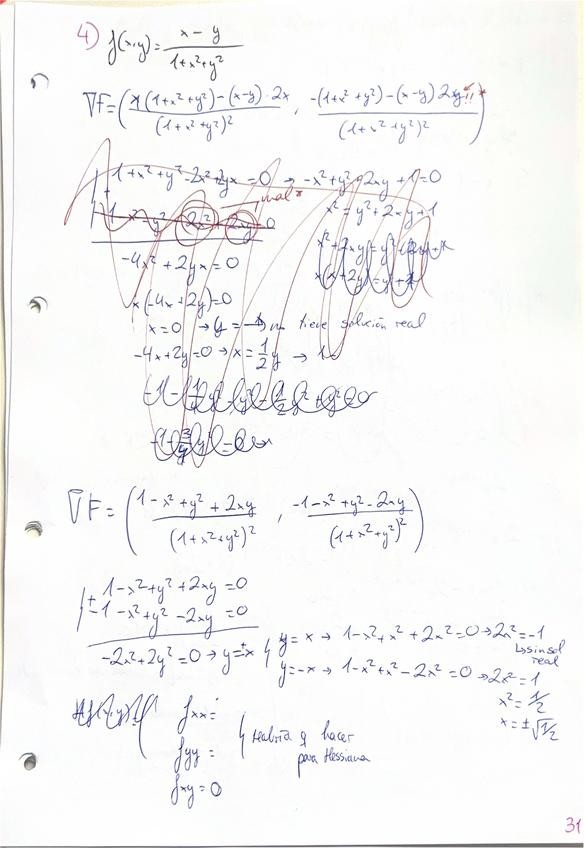 4) f(x,y) = (x - y)/(1+x²+y²)
∇F = ( (1(1+x²+y²) - (x-y)·2x)/(1+x²+y²)² , (-(1+x²+y²) - (x-y) 2y)/(1+x²+y²)² ) !! *
1+x²+y² - 2x² + 2yx = 0 → -x²+y²+2xy+1=0
mal *
-1 -x² -y² 2x² 2xy = 0
x² = y²+2xy+1
-4x² + 2yx = 0
x(-4x+2y)=0
x=0 → y = tiene solución real
-4x+2y=0 → x = 1/2 y → 1-
∇F = ( (1-x²+y²+2xy)/(1+x²+y²)² , (-1-x²+y²-2xy)/(1+x²+y²)² )
+ 1-x²+y²+2xy=0
-1-x²+y²-2xy=0
-2x²+2y²=0 → y=±x
y=x → 1-x²+x²+2x²=0 → 2x²=-1
↳ sin sol real
y=-x → 1-x²+x²-2x²=0 → 2x²=1
x²=1/2
x=±√1/2
fxx =
fyy =
fxy = 0
habría q hacer
para Hessiana
31